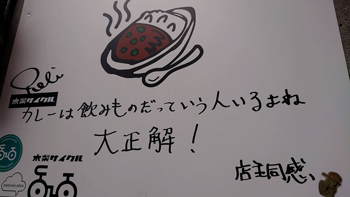 木製サイクル
カレーは飲みものだっていう人いるよね
大正解!
木製サイクル
店主同感、